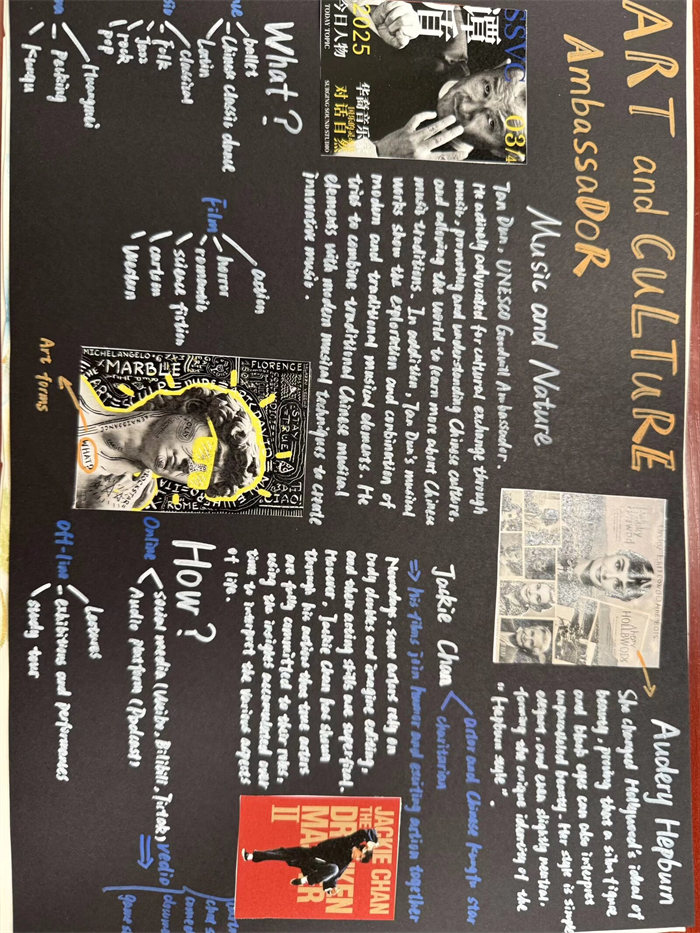 ART and CULTURE
AmbassaDoR
SSVC
03/4
2025
今日人物
TODAY TOPIC
华裔音乐
对话自然
SURGING SOUND STUDIO
Music and Nature
Tan Dun, UNESCO Goodwill Ambassador.
He actively advocated for cultural exchange through
music, promoting and understanding Chinese culture,
and allowing the world to learn more about Chinese
music traditions. In addition, Tan Dun's musical
works show the exploration and combination of
modern and traditional musical elements. He
tries to combine traditional Chinese musical
elements with modern musical techniques to create
innovative music.
Audery Hepburn
She changed Hollywood's ideal of
beauty, proving that a slim figure
and black eyes can also interpret
unparalleled beauty. Her style is simple
elegant and even slightly neutral,
forming the unique identity of the
"Hepburn style".
HOLLYWOOD
Jackie Chan
actor and Chinese kungfu star
charitarian
⇒ his films join humor and exciting action together
Nowadays, some actors rely on
body doubles and imagine editing,
and their acting skills are superficial.
However, Jackie Chan has shown
through his actions that true actors
are fully committed to their roles,
using the insights accumulated over
time to interpret the various aspects
of life.
JACKIE CHAN
THE
DRUNKEN
MASTER
II
What?
ballet
Chinese classic dance
Latin
classical
folk
Jazz
rock
pop
Film
action
horror
romantic
science fiction
cartoon
Western
Huangmei
Peaking
Kunqu
MICHELANGELO
MARBLE
FLORENCE
STAY
TRUE
ROME
WHAT?
Art forms
How?
Online
social media (Weibo, Bilibili, Tiktok)
Audio platform (Podcast)
vedio
Off-line
Lectures
exhibitions and performances
study tour